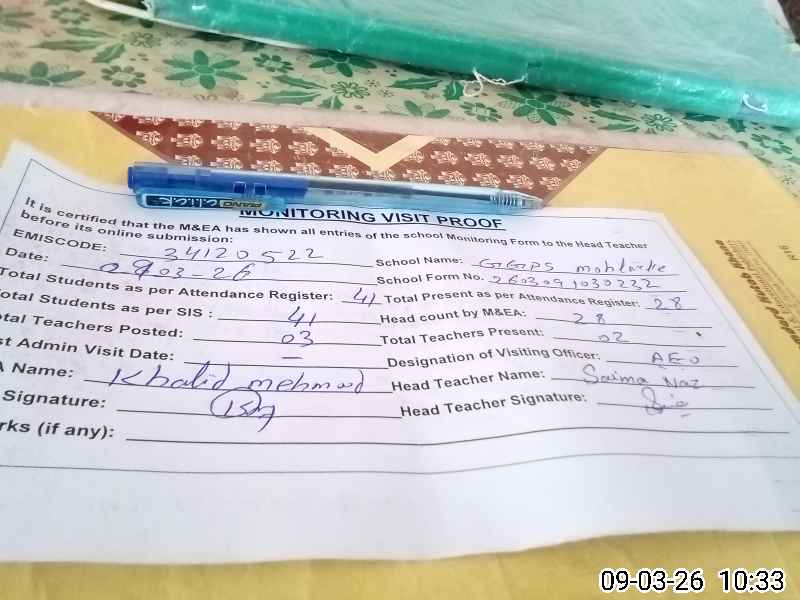 PIANO click
MONITORING VISIT PROOF
It is certified that the M&EA has shown all entries of the school Monitoring Form to the Head Teacher
before its online submission:
EMISCODE: 34120522 School Name: GGPS
Date: 09-03-26 School Form No. 260309 1030232
Total Students as per Attendance Register: 41 Total Present as per Attendance Register: 28
otal Students as per SIS : 41 Head count by M&EA: 28
otal Teachers Posted: 03 Total Teachers Present: 02
st Admin Visit Date: — Designation of Visiting Officer: AEO
A Name: Khalid mehmood Head Teacher Name: Saima Naz
Signature: Head Teacher Signature:
rks (if any):
09-03-26 10:33